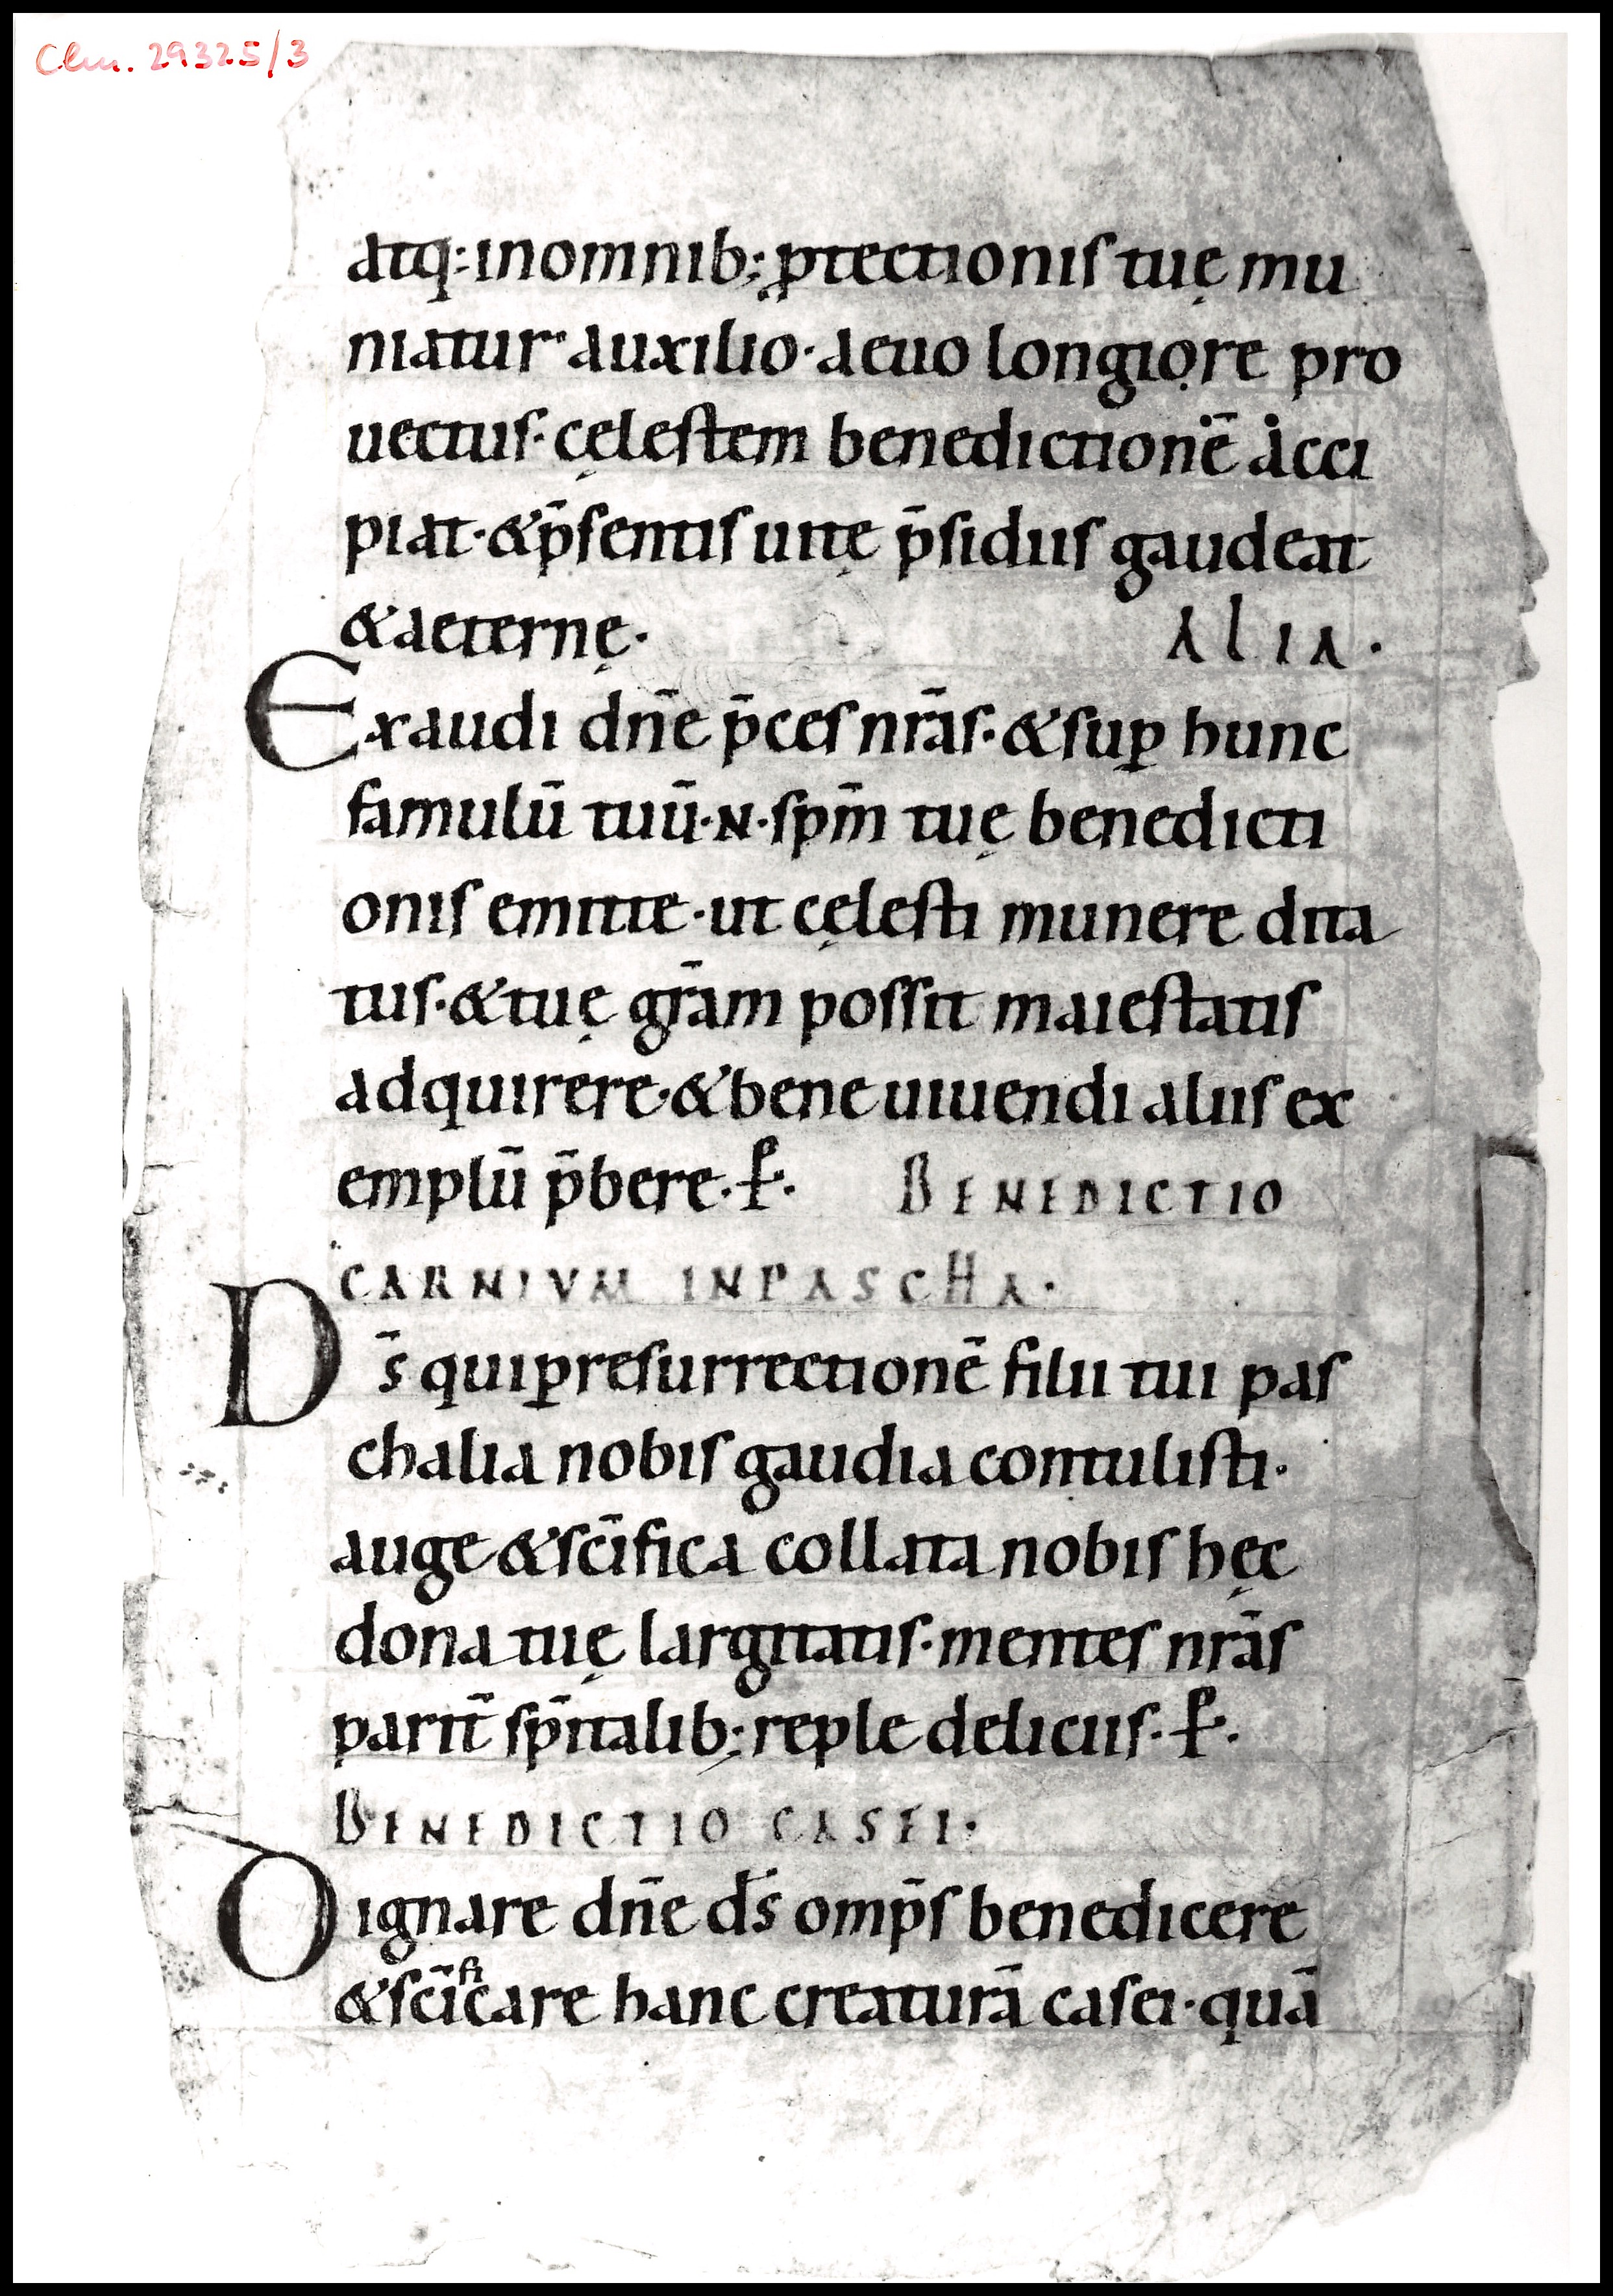 Clm. 29325/3
atq: inomnib; ꝓtectionis tuę mu
niatur auxilio· aeuo longiore pro
uectus· cęlestem benedictionē acci
piat· &p̄sentis uitę p̄sidiis gaudeat
&aeternę·
ALIA·
Exaudi dn̄e p̄ces nr̄as· &suꝑ hunc
famulū tuū· N· sp̄m tuę benedicti
onis emitte· ut cęlesti munere dita
tus· &tuę gr̄am possit maiestatis
adquirere· &bene uiuendi aliis ex
emplū p̄bere· ꝑ· BENEDICTIO
CARNIVM INPASCHA·
Ds̄ quiꝑresurrectionē filii tui pas
chalia nobis gaudia contulisti·
auge &sc̄ifica collata nobis hęc
dona tuę largitatis· mentes nr̄as
parit̄ sp̄italib; reple deliciis· ꝑ·
BENEDICTIO CASEI·
Dignare dn̄e ds̄ omp̄s benedicere
&sc̄ificare hanc creaturā casei· quā